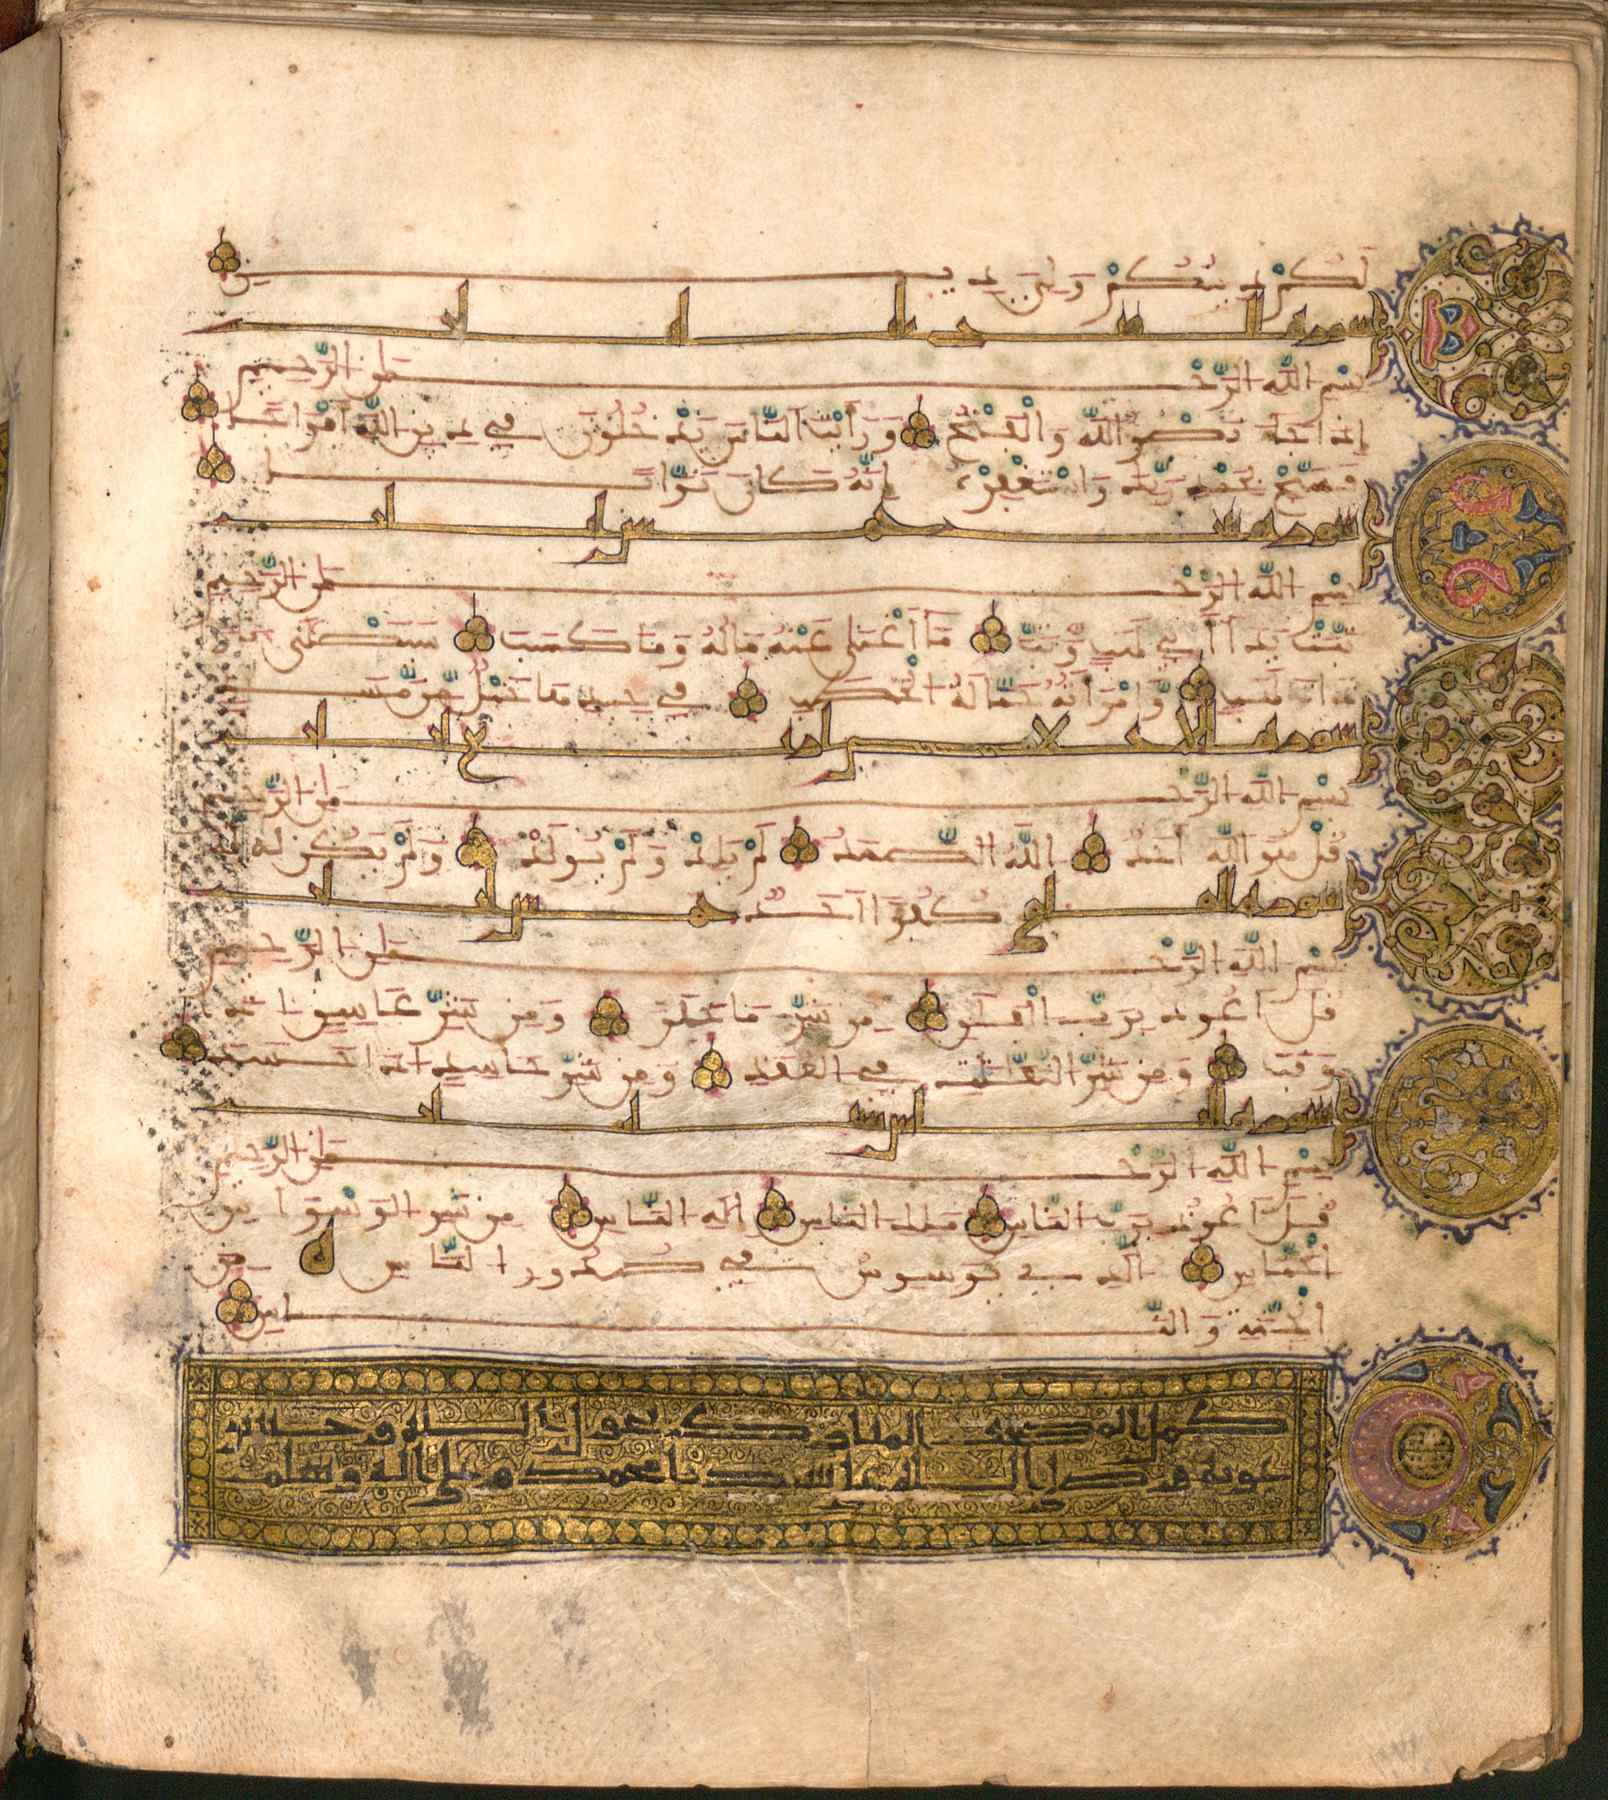 لَكُمْ دِينُكُمْ وَلِيَ دِينِ
سورة النصر
بِسْمِ اللَّهِ الرَّحْمَٰنِ الرَّحِيمِ
إِذَا جَاءَ نَصْرُ اللَّهِ وَالْفَتْحُ وَرَأَيْتَ النَّاسَ يَدْخُلُونَ فِي دِينِ اللَّهِ أَفْوَاجًا
فَسَبِّحْ بِحَمْدِ رَبِّكَ وَاسْتَغْفِرْهُ إِنَّهُ كَانَ تَوَّابًا
سورة
بِسْمِ اللَّهِ الرَّحْمَٰنِ الرَّحِيمِ
تَبَّتْ يَدَا أَبِي لَهَبٍ وَتَبَّ مَا أَغْنَىٰ عَنْهُ مَالُهُ وَمَا كَسَبَ سَيَصْلَىٰ نَارًا
ذَاتَ لَهَبٍ وَامْرَأَتُهُ حَمَّالَةَ الْحَطَبِ فِي جِيدِهَا حَبْلٌ مِنْ مَسَدٍ
سورة الإخلاص أربع آيات
بِسْمِ اللَّهِ الرَّحْمَٰنِ الرَّحِيمِ
قُلْ هُوَ اللَّهُ أَحَدٌ اللَّهُ الصَّمَدُ لَمْ يَلِدْ وَلَمْ يُولَدْ وَلَمْ يَكُنْ لَهُ
كُفُوًا أَحَدٌ
سورة الفلق خمس آيات
بِسْمِ اللَّهِ الرَّحْمَٰنِ الرَّحِيمِ
قُلْ أَعُوذُ بِرَبِّ الْفَلَقِ مِنْ شَرِّ مَا خَلَقَ وَمِنْ شَرِّ غَاسِقٍ إِذَا
وَقَبَ وَمِنْ شَرِّ النَّفَّاثَاتِ فِي الْعُقَدِ وَمِنْ شَرِّ حَاسِدٍ إِذَا حَسَدَ
سورة الناس
بِسْمِ اللَّهِ الرَّحْمَٰنِ الرَّحِيمِ
قُلْ أَعُوذُ بِرَبِّ النَّاسِ مَلِكِ النَّاسِ إِلَٰهِ النَّاسِ مِنْ شَرِّ الْوَسْوَاسِ
الْخَنَّاسِ الَّذِي يُوَسْوِسُ فِي صُدُورِ النَّاسِ مِنَ
الْجِنَّةِ وَالنَّاسِ
كمل المصحف المبارك بحمد الله وحسن
عونه وصلى الله على سيدنا محمد وعلى آله وسلم